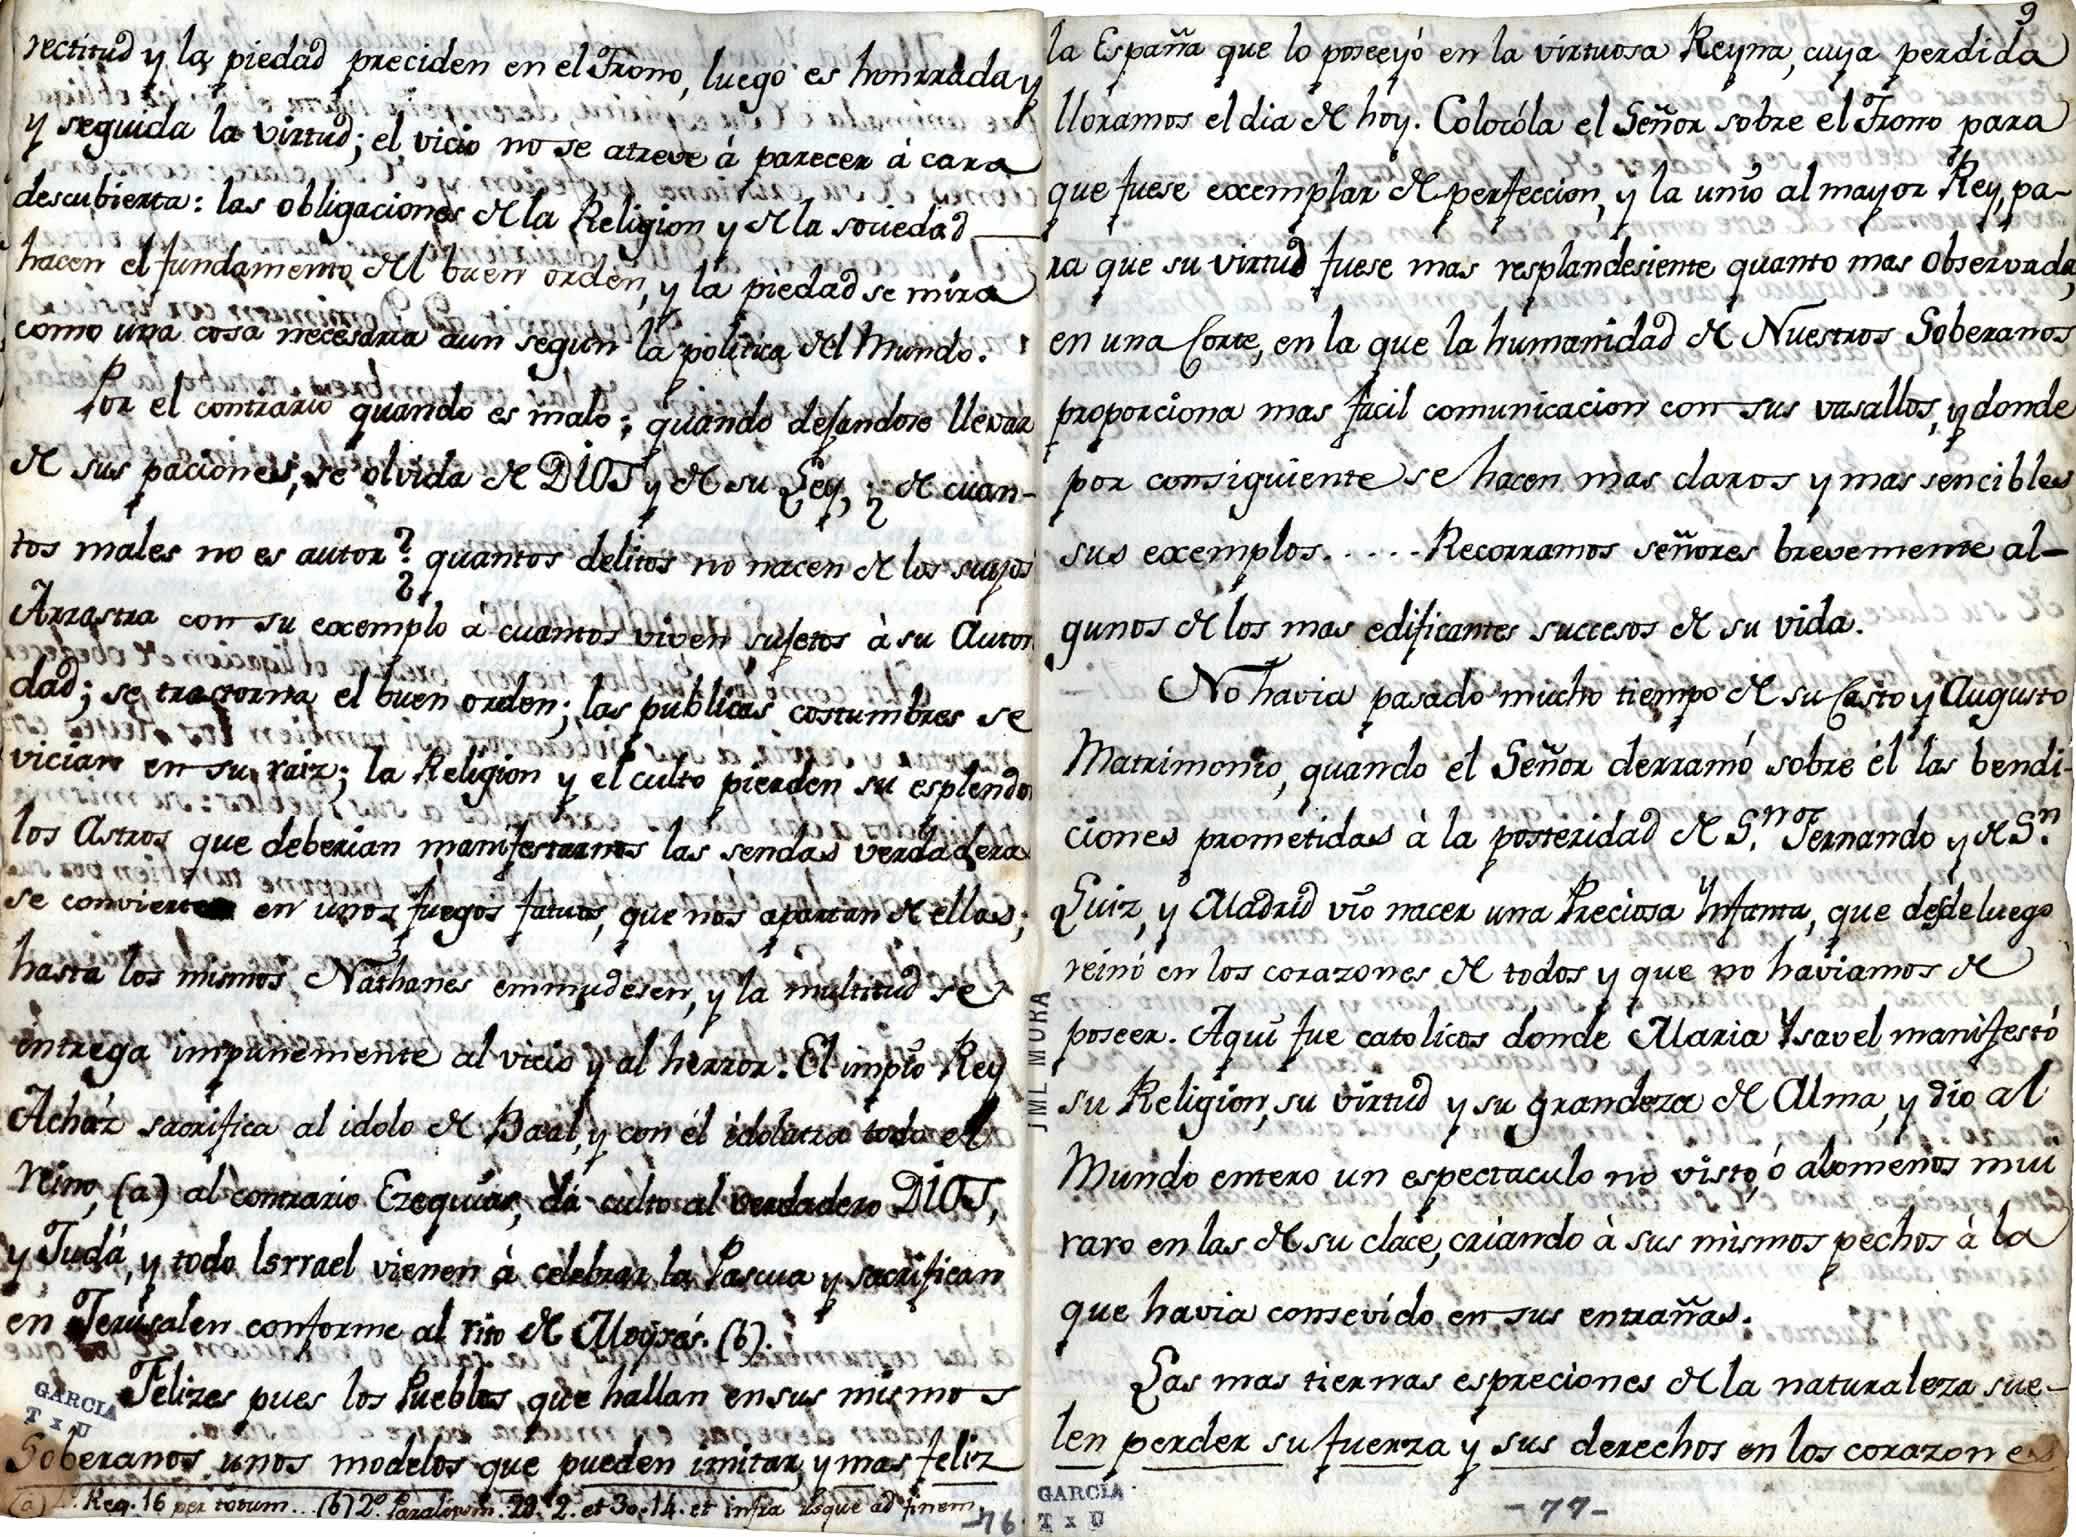 rectitud y la piedad preciden en el Trono, luego es honrrada y
y seguida la virtud; el vicio no se atreve à parecer à cara
descubierta: las obligaciones de la Religion y de la sociedad
hacen el fundamento del buen orden, y la piedad se mira
como una cosa necesaria aun segun la politica del Mundo.
Por el contrario quando es malo; quando dejandose llevar
de sus paciones, se olvida de DIOS y de su Ley, ¿ de cuan-
tos males no es autor? quantos delitos no nacen de los suyos?
Arrastra con su exemplo à cuantos viven sujetos à su Autori
dad; se trastorna el buen orden; las publicas costumbres se
vician en su raiz; la Religion y el culto pierden su esplendor
los Astros que deberian manifestarnos las sendas verdadera
se convierten en unos fuegos fatuos, que nos apartan de ellas;
hasta los mismos Nathanes enmudesen, y la multitud se
entrega impunemente al vicio y al herror. El impio Rey
Acház sacrifica al idolo de Baal, y con él idolatra todo el
reino, (a) al contrario Ezequias, dá culto al verdadero DIOS,
y Judá, y todo Isrrael vienen à celebrar la Pascua y sacrifican
en Jerusalen conforme al rito de Moysés. (b).
Felizes pues los Pueblos que hallan en sus mismos
Soberanos unos modelos que pueden imitar, y mas feliz
(a) Reg. 16 per totum... (b) 2º Paralipom. 28. 2. et 30. 14. et infra usque ad finem.
-76-
GARCIA
T x U
9
la España que lo poseeyó en la virtuosa Reyna, cuya perdida
lloramos el dia de hoy. Colocóla el Señor sobre el Trono para
que fuese exemplar de perfeccion, y la unio al mayor Rey, pa-
ra que su virtud fuese mas resplandesiente quanto mas observada,
en una Corte, en la que la humanidad de Nuestros Soberanos
proporciona mas facil comunicacion con sus vasallos, y donde
por consiguiente se hacen mas claros y mas sencibles
sus exemplos. . . . . Recorramos señores brevemente al-
gunos de los mas edificantes succesos de su vida.
No havia pasado mucho tiempo de su Casto y Augusto
Matrimonio, quando el Señor derramó sobre él las bendi-
ciones prometidas à la posteridad de Sn. Fernando y de Sn.
Luiz, y Madrid vio nacer una Preciosa Ynfanta, que desde luego
reinó en los corazones de todos y que no haviamos de
poseer. Aqui fue catolicos donde Maria Ysavel manifestó
su Religion, su virtud y su grandeza de Alma, y dio al
Mundo entero un espectaculo no visto, ó alomenos mui
raro en las de su clace, criando à sus mismos pechos à la
que havia consevido en sus entrañas.
Las mas tiernas espreciones de la naturaleza sue-
len perder su fuerza y sus derechos en los corazones
GARCIA
T x U
-77-
JML MORA